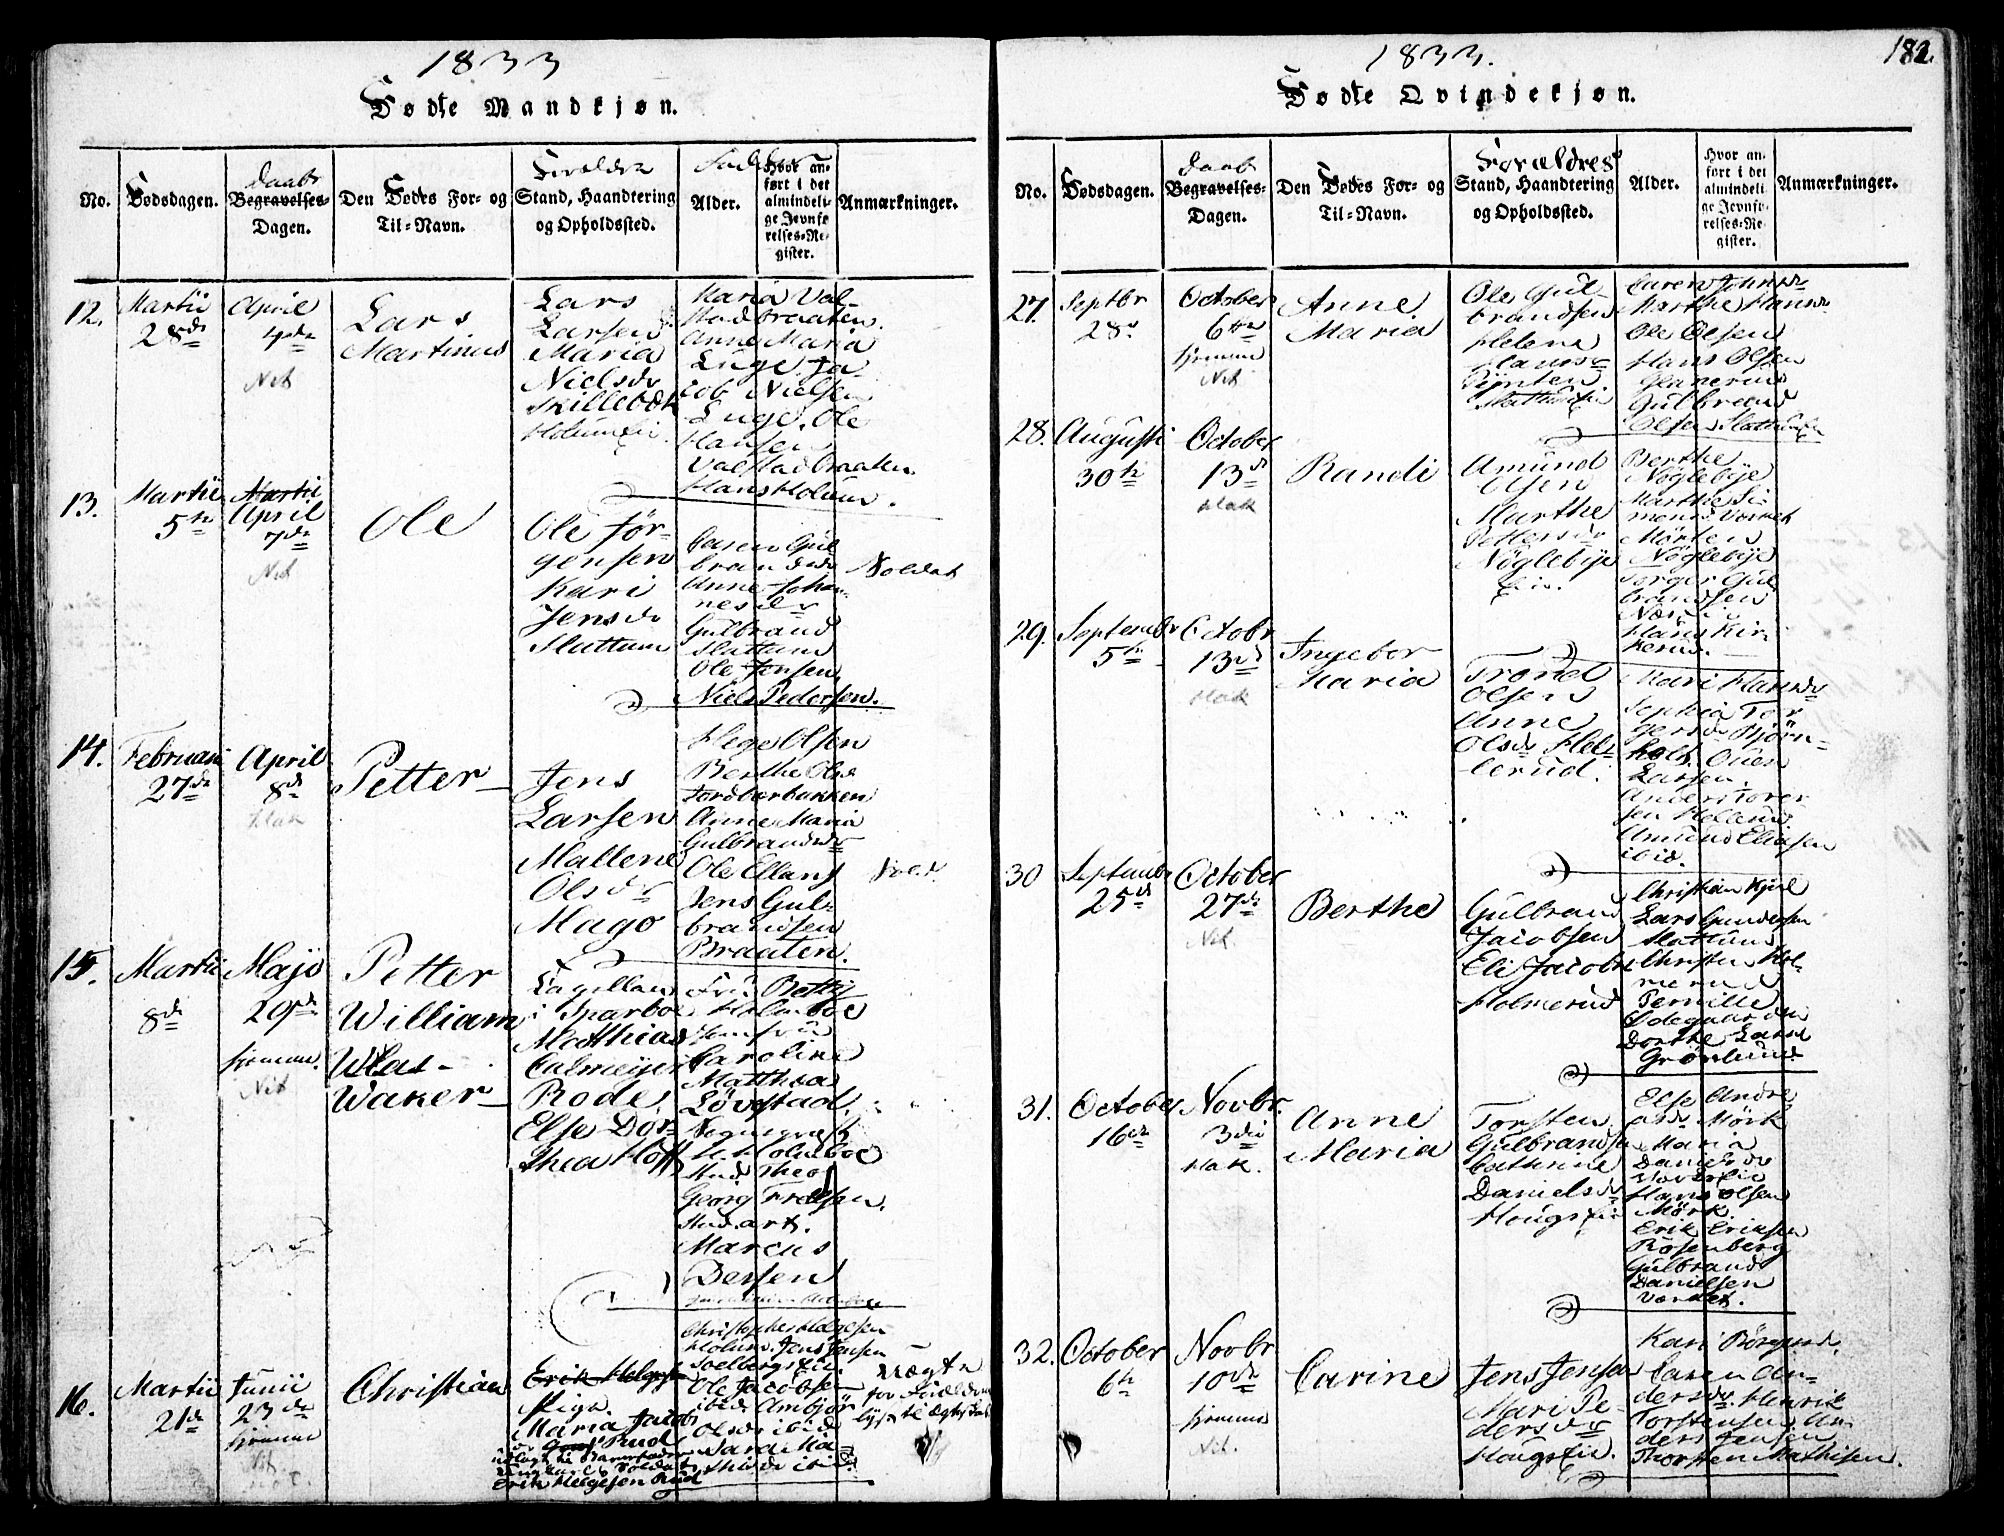 1833
Fødte Mandkjøn.
No.
Fødsdagen.
Daabs
Begravelses-
Dagen.
Den Fødes For- og
Til-Navn.
Forældre
Stand, Haandtering
og Opholdssted.
Alder.
Hvor an-
ført i det
almindeli-
ge Jevnfø-
relses-Re-
gister.
Anmærkninger.
12.
Martii
28de
April
4de
Net
Lars
Martinus
Lars
Larsen
Maria
Nielsdr
Skillebæk
Maria Val-
stadbraaten.
Anne Maria
Luge. Ja-
cob Nielsen
Luge. Ole
Hansen
Valstadbraaten
Hans Holum.
13.
Martii
5te
Martii
April
7de
Net
Ole
Ole Jør-
gensen
Kari
Jensdr
Slattum
Caren Gul
brandsdr
Anne Johan-
nesdr
Gulbrand
Slattum
Ole Jensen
Niels Pedersen.
Soldat
14.
Februarii
27de
April
8de
Hak
Petter
Jens
Larsen
Mallene
Olsdr
Mago
Hege Olsen
Berthe Olsdr
Anne Maria
Gulbrandsdr
Jens Gul-
brandsen
Braaten.
Sold.
15.
Martii
8de
Majo
29de
hjemme.
Net
Petter
William
Wlas-
Waker
Capellan
i Sparboe
Matthias
Calmeyer
Rode,
Else Dor-
thea Hoff
Fru Betty
Holmboe
Jomfru
Caroline
Matthea
Løvstad.
Holmboe
Stud Theo
Georg Fredsen.
Stud art.
Marcus
Bersen
16.
Martii
21de
Junii
23de
hjemme
Net
Christian
Erik Helgesen
Pige.
Maria Jacobs
Rud
udlagt til Barnefader
Soldat
Erik Helgesen Rud
Christopher Helgesen
Holum. Jens Jensen
Ole Jacobsen
ibid. Ambjør
Olsdr ibid
Sara Ma
thisdr ibid.
Uægte
1833.
182.
Fødte Qvindekjøn.
No.
Fødsdagen.
Daabs
Begravelses-
Dagen.
Den Fødes For- og
Til-Navn.
Forældres
Stand, Haandtering
og Opholdssted.
Alder.
Hvor an-
ført i det
almindeli-
ge Jevnfø-
relses-Re-
gister.
Anmærkninger.
27.
Septbr
28de
October
6te
hjemme
Net
Anne
Maria
Ole Gul-
brandsen
Helene
Hansdr
Caren Johnsdr
Marthe Hansdr
Ole Olsen
Hans Olsen
Glanerud
Gulbrand
Olsen Slattum
28.
Augusti
30te
October
13de
Hak
Randi
Amund
Olsen
Marthe
Pettersdr
Nøglebye
Berthe
Nøglebye
Marthe Si-
Morten
Nøglebye
Torger Gul
brandsen
Hans Kir-
kerud.
29.
Septembr
5te
Octobr
13de
Hak
Ingebor
Maria
Trond
Olsen
Anne
Olsdr Hel-
lerud.
Kari Hansdr
Sophia Tor
gersdr Bjørn-
holt. Ouen
Larsen.
Anders Torer
sen Hellerud
Amund Eliasen
ibid.
30
Septembr
25de
October
27de
Net.
Berthe
Gulbrand
Jacobsen
Eli Jacobsdr
Holmerud
Christian Kjøl
Lars Gundersen
Slattum
Christen Hol-
merud
Pernille
Ødegaarden
Dorthe Larsdr
Grønlund
31.
October
16de
Novbr.
3die
Hak.
Anne
Maria
Torsten
Gulbrands
Cathrine
Danielsdr
Else Andre
asdr Mörk
Maria
Danielsdr
Hans Olsen
Mørk.
Erik Eriksen
Rosenberg
Gulbrand
Danielsen
Vardet.
32.
October
6te
Novbr
10de
hjemme
Net.
Carine
Jens Jensen
Mari Pe-
dersdr
Caren An-
dersdr. Henrik
Torstensen An-
ders Jensen
Thorsten Mathisen.